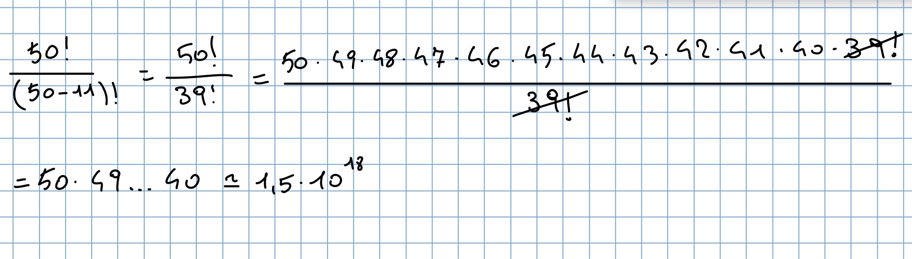 50!/(50-11)! = 50!/39! = 50·49·48·47·46·45·44·43·42·41·40·39!/39!
= 50·49...40 ≃ 1,5·10^18